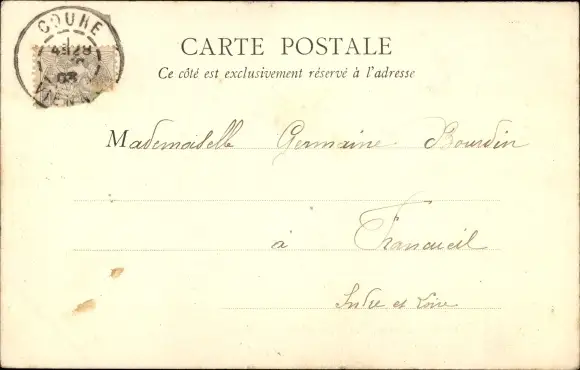 COUHE
4E /28
03
VIENNE
CARTE POSTALE
Ce côté est exclusivement réservé à l'adresse
Mademoiselle Germaine Bourdin
à Francueil
Indre et Loire